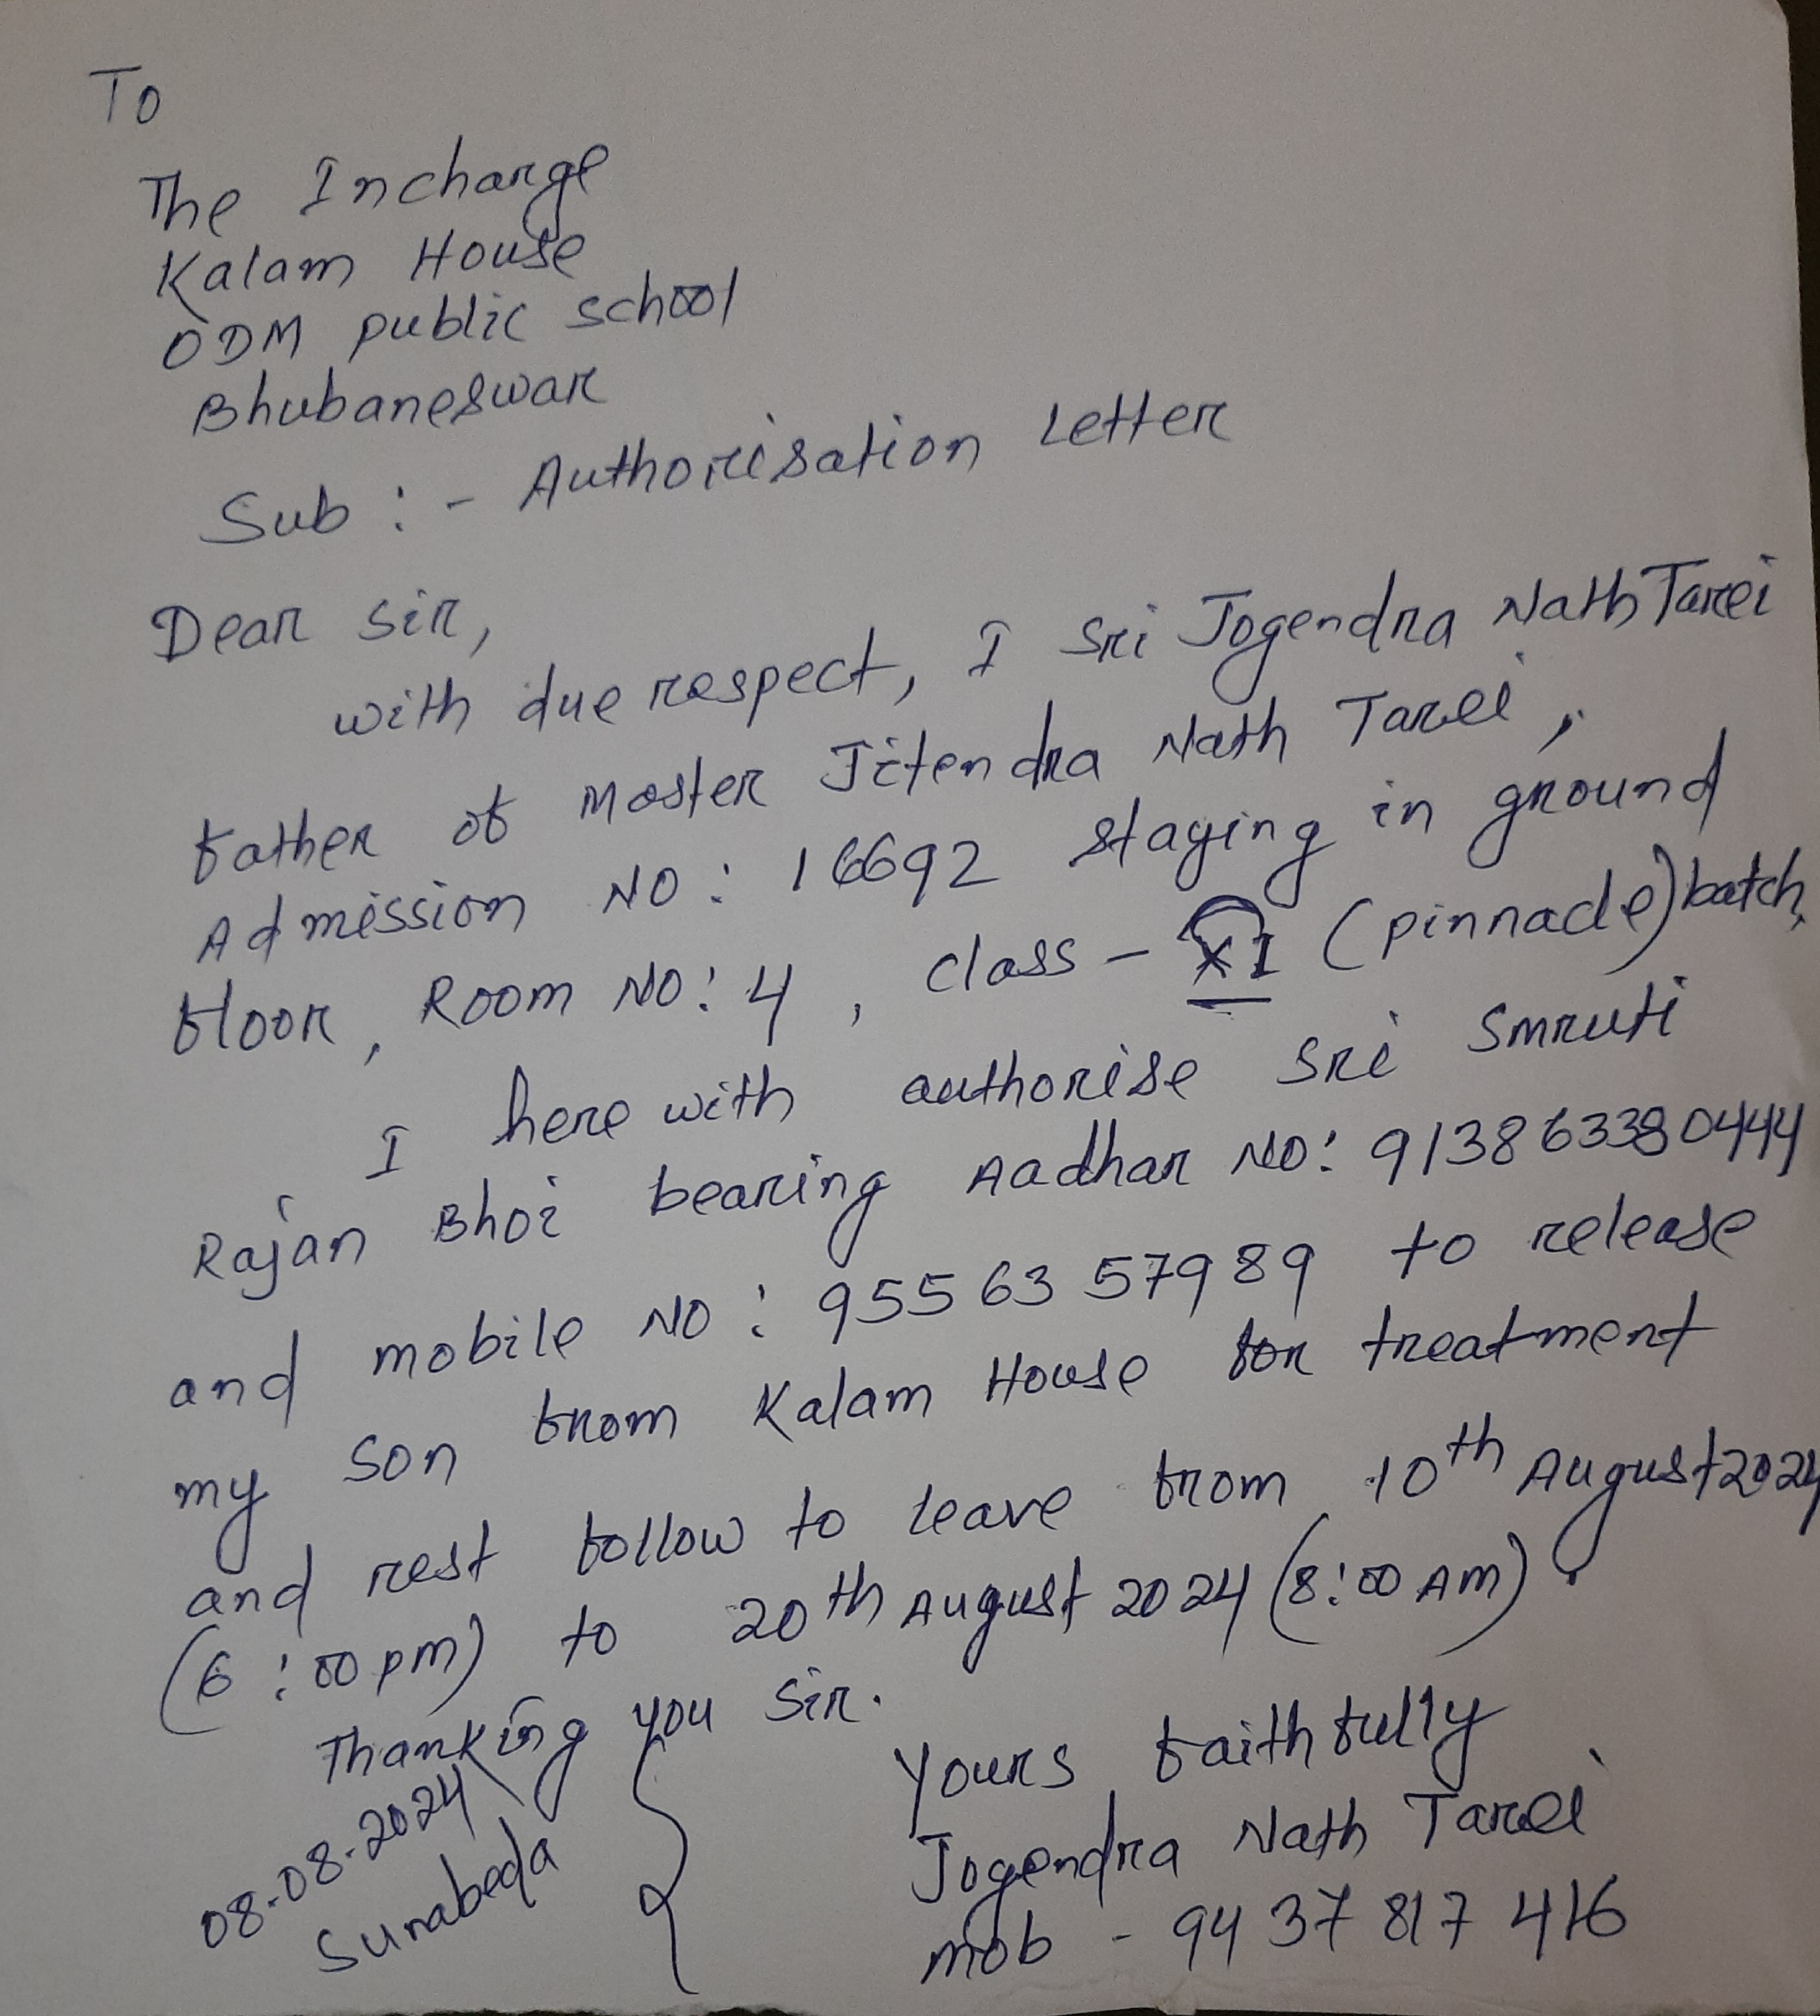 To
The Incharge
Kalam House
ODM public school
Bhubaneswar
Sub :- Authorisation Letter
Dear Sir,
with due respect, I Sri Jogendra Nath Tarei
father of Master Jitendra Nath Tarei,
Admission NO: 16692 staying in ground
floor, Room NO: 4, class - XI (pinnacle) batch,
I here with authorise Sri Smruti
Rajan Bhoi bearing Aadhar NO: 913863380444
and mobile NO: 955 63 57989 to release
my son from Kalam House for treatment
and rest follow to leave from 10th August 2024
(6:00 pm) to 20th August 2024 (8:00 AM).
Thanking you Sir.
08-08-2024
Sunabeda
Yours faithfully
Jogendra Nath Tarei
mob - 94 37 817 416